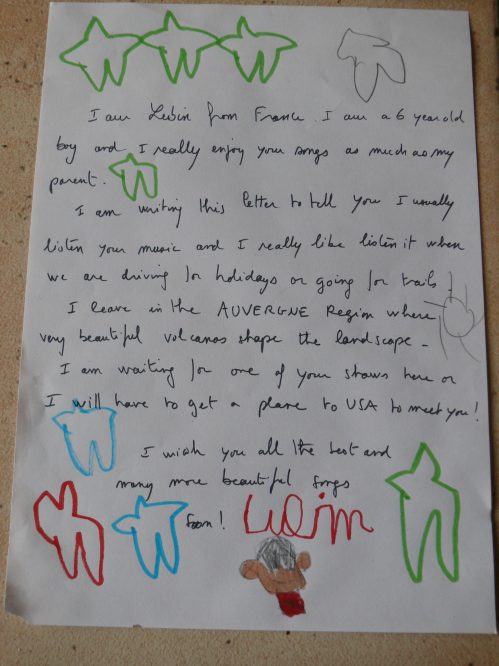 I am Lubin from France. I am a 6 year old
boy and I really enjoy your songs as much as my
parent.
I am writing this letter to tell you I usually
listen your music and I really like listen it when
we are driving for holidays or going for trails
I leave in the AUVERGNE Region where
very beautiful volcanos shape the landscape -
I am waiting for one of your shows here or
I will have to get a plane to USA to meet you!
I wish you all the best and
many more beautiful songs
soon! LUBIN